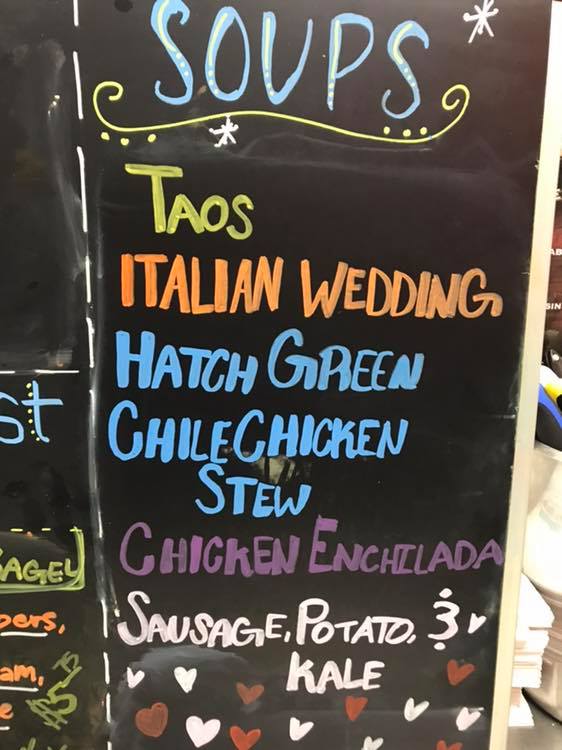 SOUPS
TAOS
ITALIAN WEDDING
HATCH GREEN
CHILE CHICKEN
STEW
CHICKEN ENCHILADA
SAUSAGE, POTATO, &
KALE